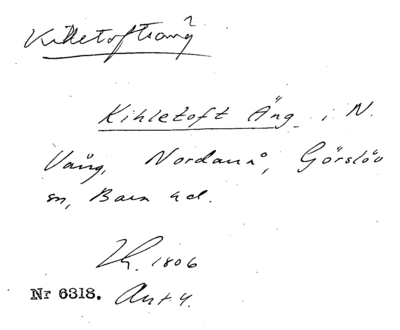 Kihletoft Äng i N.
Vång, Nordanå, Görslöv
sn, Bara hd.
1806
Nr 6318. Ant 4.